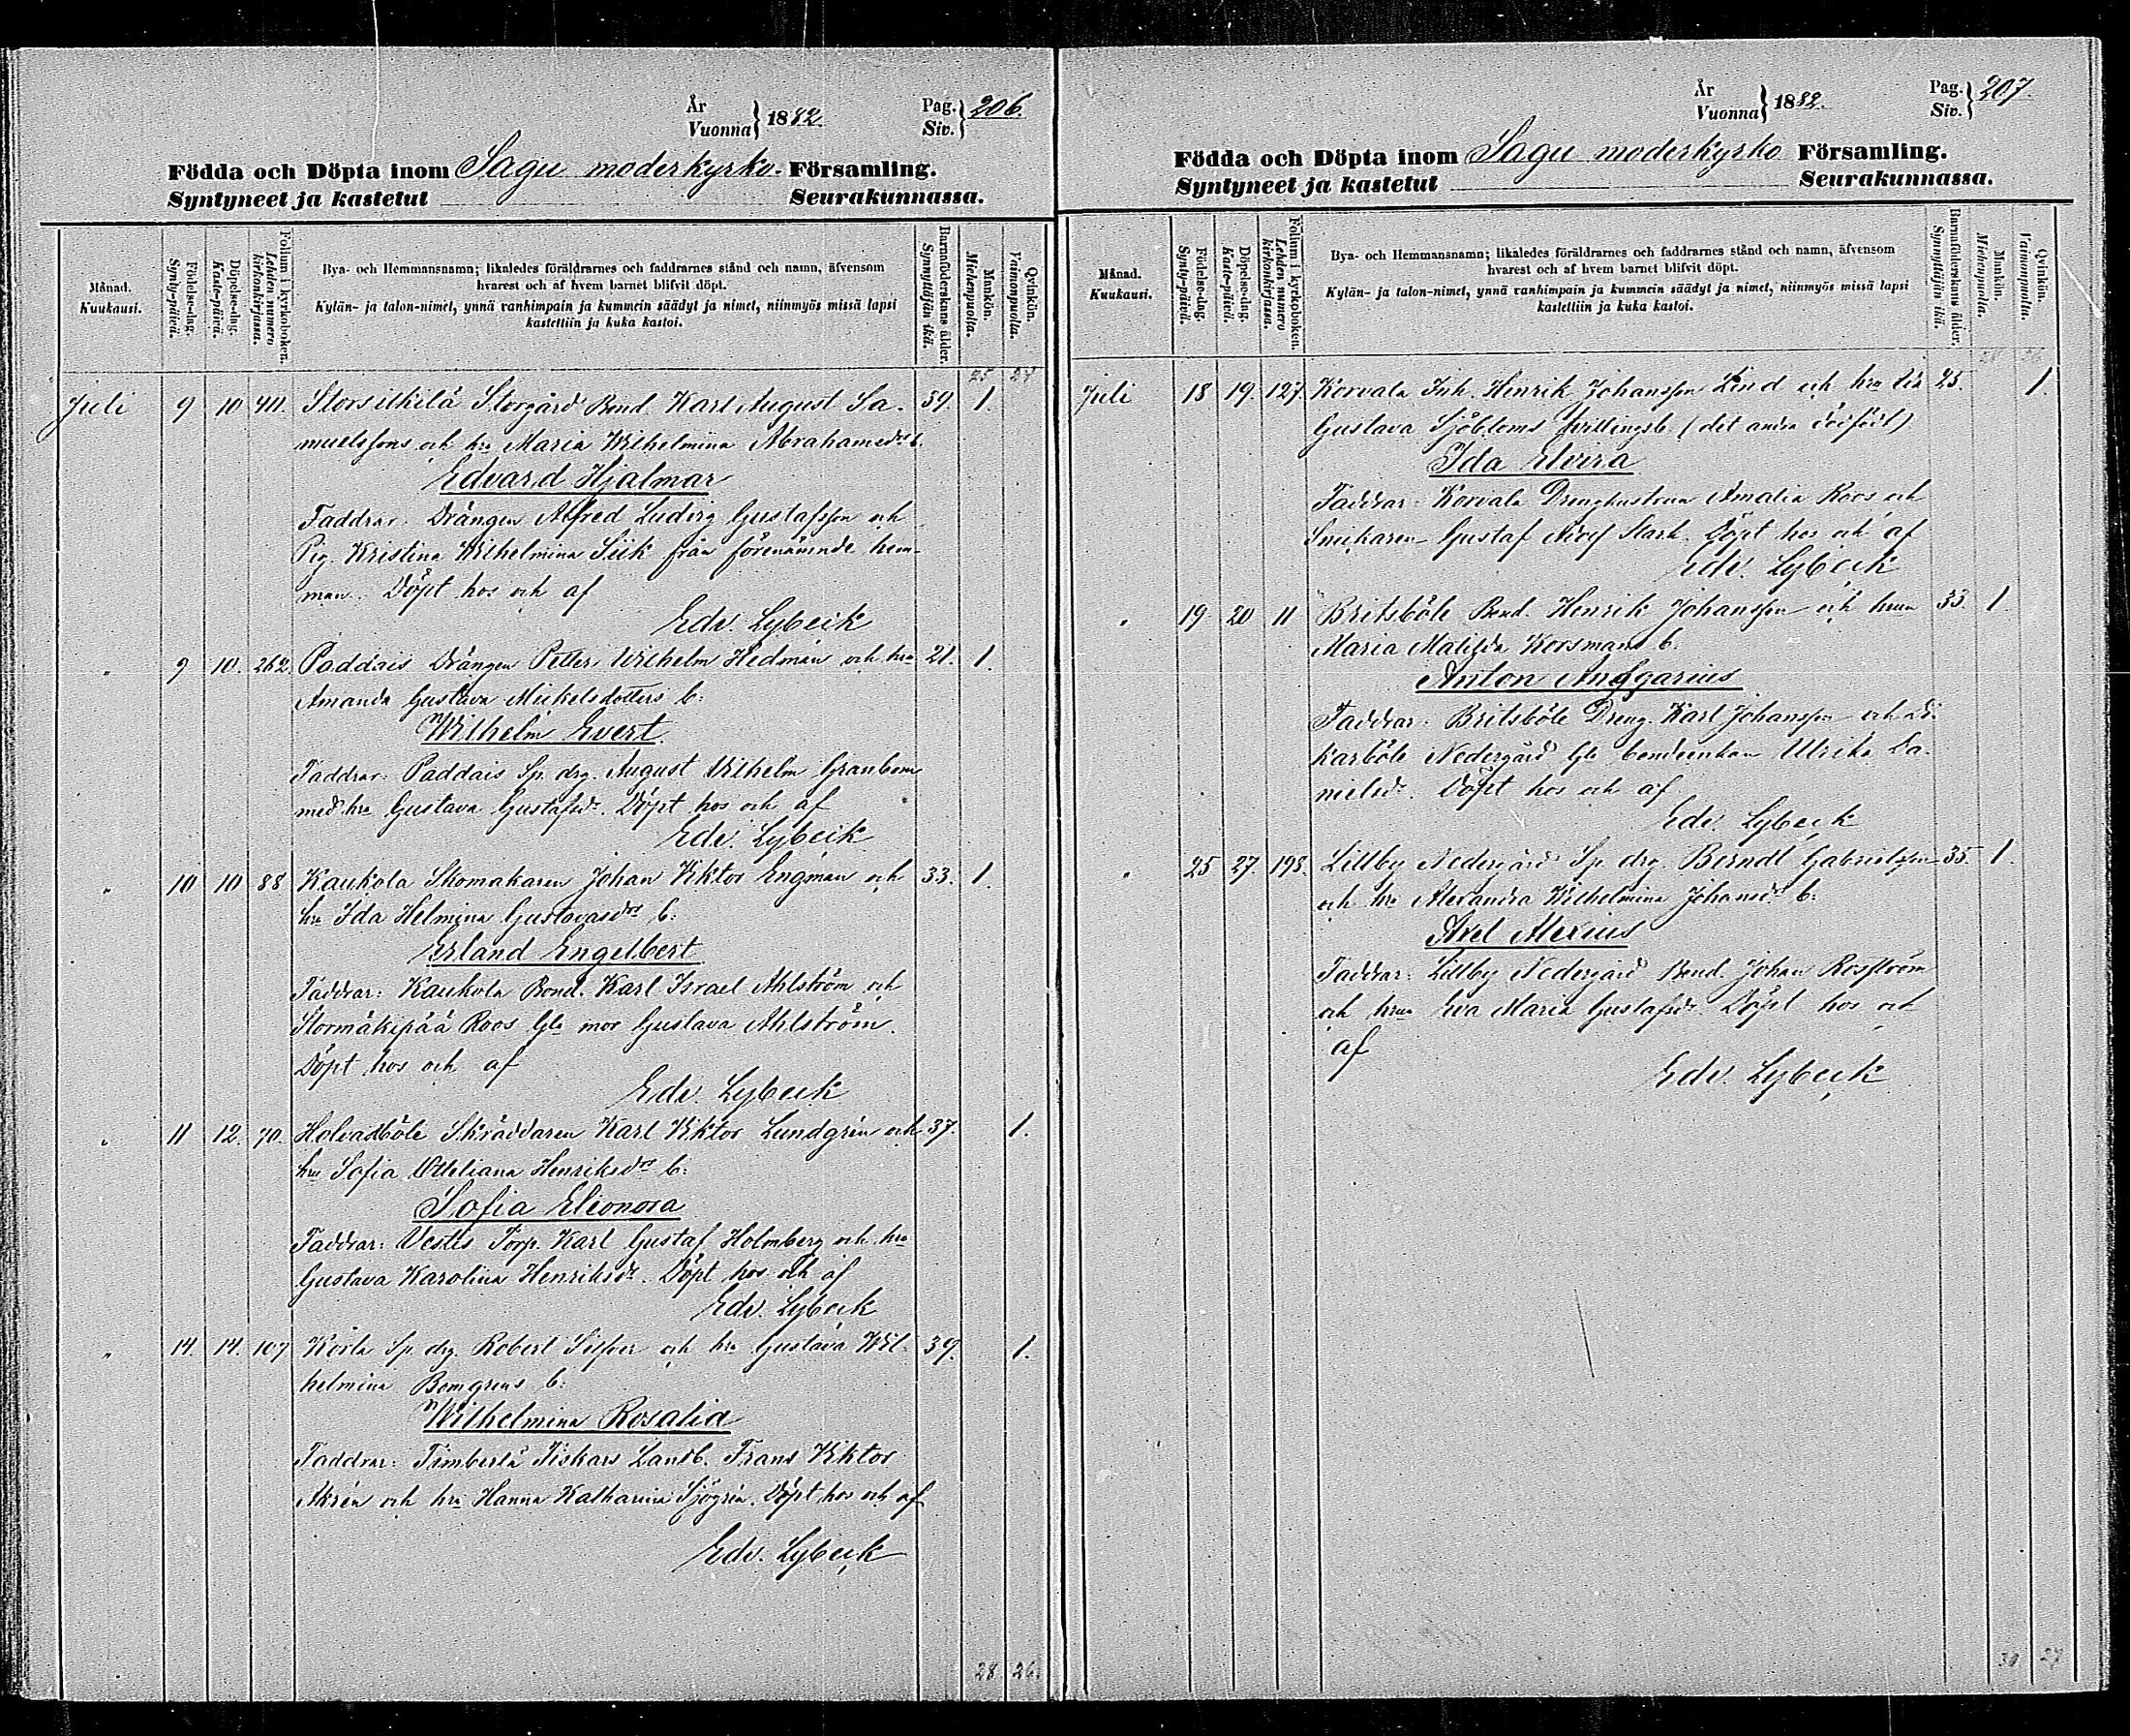 År
Vuonna } 1882. Pag. Siv. } 206.
Födda och Döpta inom Sagu moderkyrko- Församling.
Syntyneet ja kastetut Seurakunnassa.
Månad.
Kuukausi.
Födelse-dag.
Synty-päivä.
Döpelse-dag.
Kaste-päivä.
Folium i kyrkoboken.
Lehden numero kirkonkirjassa.
Bya- och Hemmansnamn; likaledes föräldrarnes och faddrarnes stånd och namn, äfvensom
hvarest och af hvem barnet blifvit döpt.
Kylän- ja talon-nimet, ynnä vanhimpain ja kummein säädyt ja nimet, niinmyös missä lapsi
kastettiin ja kuka kastoi.
Barnföderskans ålder.
Synnyttäjän ikä.
Mankön.
Miehenpuolta.
Qvinkön.
Vaimonpuolta.
25 24
Juli 9 10 411. Storsilkilä Storgård Bond. Karl August Sa- 39. 1.
muelssons och hu Maria Wilhelmina Abrahamsdrs b.
Edvard Hjalmar
Faddrar: Drängen Alfred Ludvig Gustafsson och
Pig. Kristina Wilhelmina Siik från förenämnde hem-
man. Döpt hos och af
Edv. Lybeck
" 9 10. 262. Paddais Drängen Petter Wilhelm Hedman och hu 21. 1.
Amanda Gustava Mickelsdotters b:
Wilhelm Evert.
Faddrar: Paddais Sp. drg. August Wilhelm Granbom
med hu Gustava Gustafsdr. Döpt hos och af
Edv. Lybeck
" 10 10 88 Kaukola Skomakaren Johan Viktor Engman och 33. 1.
hu Ida Helmina Gustavasdrs b:
Erland Engelbert
Faddrar: Kaukola Bond. Karl Israel Ahlström och
Stormäkipää Roos Gla mor Gustava Ahlström.
Döpt hos och af
Edv. Lybeck
" 11 12. 70. Holvasböle Skräddaren Karl Viktor Lundgrén och 37. 1.
hu Sofia Ottiliana Henriksdrs b:
Sofia Eleonora
Faddrar: Vestis Torp. Karl Gustaf Holmberg och hu
Gustava Karolina Henriksdr. Döpt hos och af
Edv. Lybeck
" 14. 14. 107 Korla Sp. drg. Robert Silfver och hu Gustava Wil- 39. 1.
helmina Bomgrens b:
Wilhelmina Rosalia
Faddrar: Timberlä Fiskars Landb. Frans Viktor
Akrén och hu Hanna Katharina Sjögrén. Döpt hos och af
Edv. Lybeck
28 26.
År
Vuonna } 1882. Pag. Siv. } 207.
Födda och Döpta inom Sagu moderkyrko Församling.
Syntyneet ja kastetut Seurakunnassa.
Månad.
Kuukausi.
Födelse-dag.
Synty-päivä.
Döpelse-dag.
Kaste-päivä.
Folium i kyrkoboken.
Lehden numero kirkonkirjassa.
Bya- och Hemmansnamn; likaledes föräldrarnes och faddrarnes stånd och namn, äfvensom
hvarest och af hvem barnet blifvit döpt.
Kylän- ja talon-nimet, ynnä vanhimpain ja kummein säädyt ja nimet, niinmyös missä lapsi
kastettiin ja kuka kastoi.
Barnföderskans ålder.
Synnyttäjän ikä.
Mankön.
Miehenpuolta.
Qvinkön.
Vaimonpuolta.
28 26
Juli 18 19. 127. Korvala Inh. Henrik Johansson Lind och hu 25. 1.
Gustava Sjöbloms tvillingsb. (det andra dödfödt)
Ida Elvira
Faddrar: Korvala Drenghustrun Amalia Roos och
Snickaren Gustaf Adolf Stark. Döpt hos och af
Edv. Lybeck
" 19. 20 11 Britsböle Bond. Henrik Johansson och hun 33. 1.
Maria Matilda Korsmans b.
Anton Ansgarius
Faddrar: Britsböle Dreng. Karl Johansson och
karböle Nedergård Gla bondeenkan Ulrika Da-
nielsdr. Döpt hos och af
Edv. Lybeck
" 25 27. 198. Lillby Nedergård Sp. drg. Berndt Gabrielsson 35. 1.
och hu Alexandra Wilhelmina Johansdrs b:
Axel Alexius
Faddrar: Lillby Nedergård Bond. Johan Rosström
och hun Eva Maria Gustafsdr. Döpt hos och
af
Edv. Lybeck
30 27